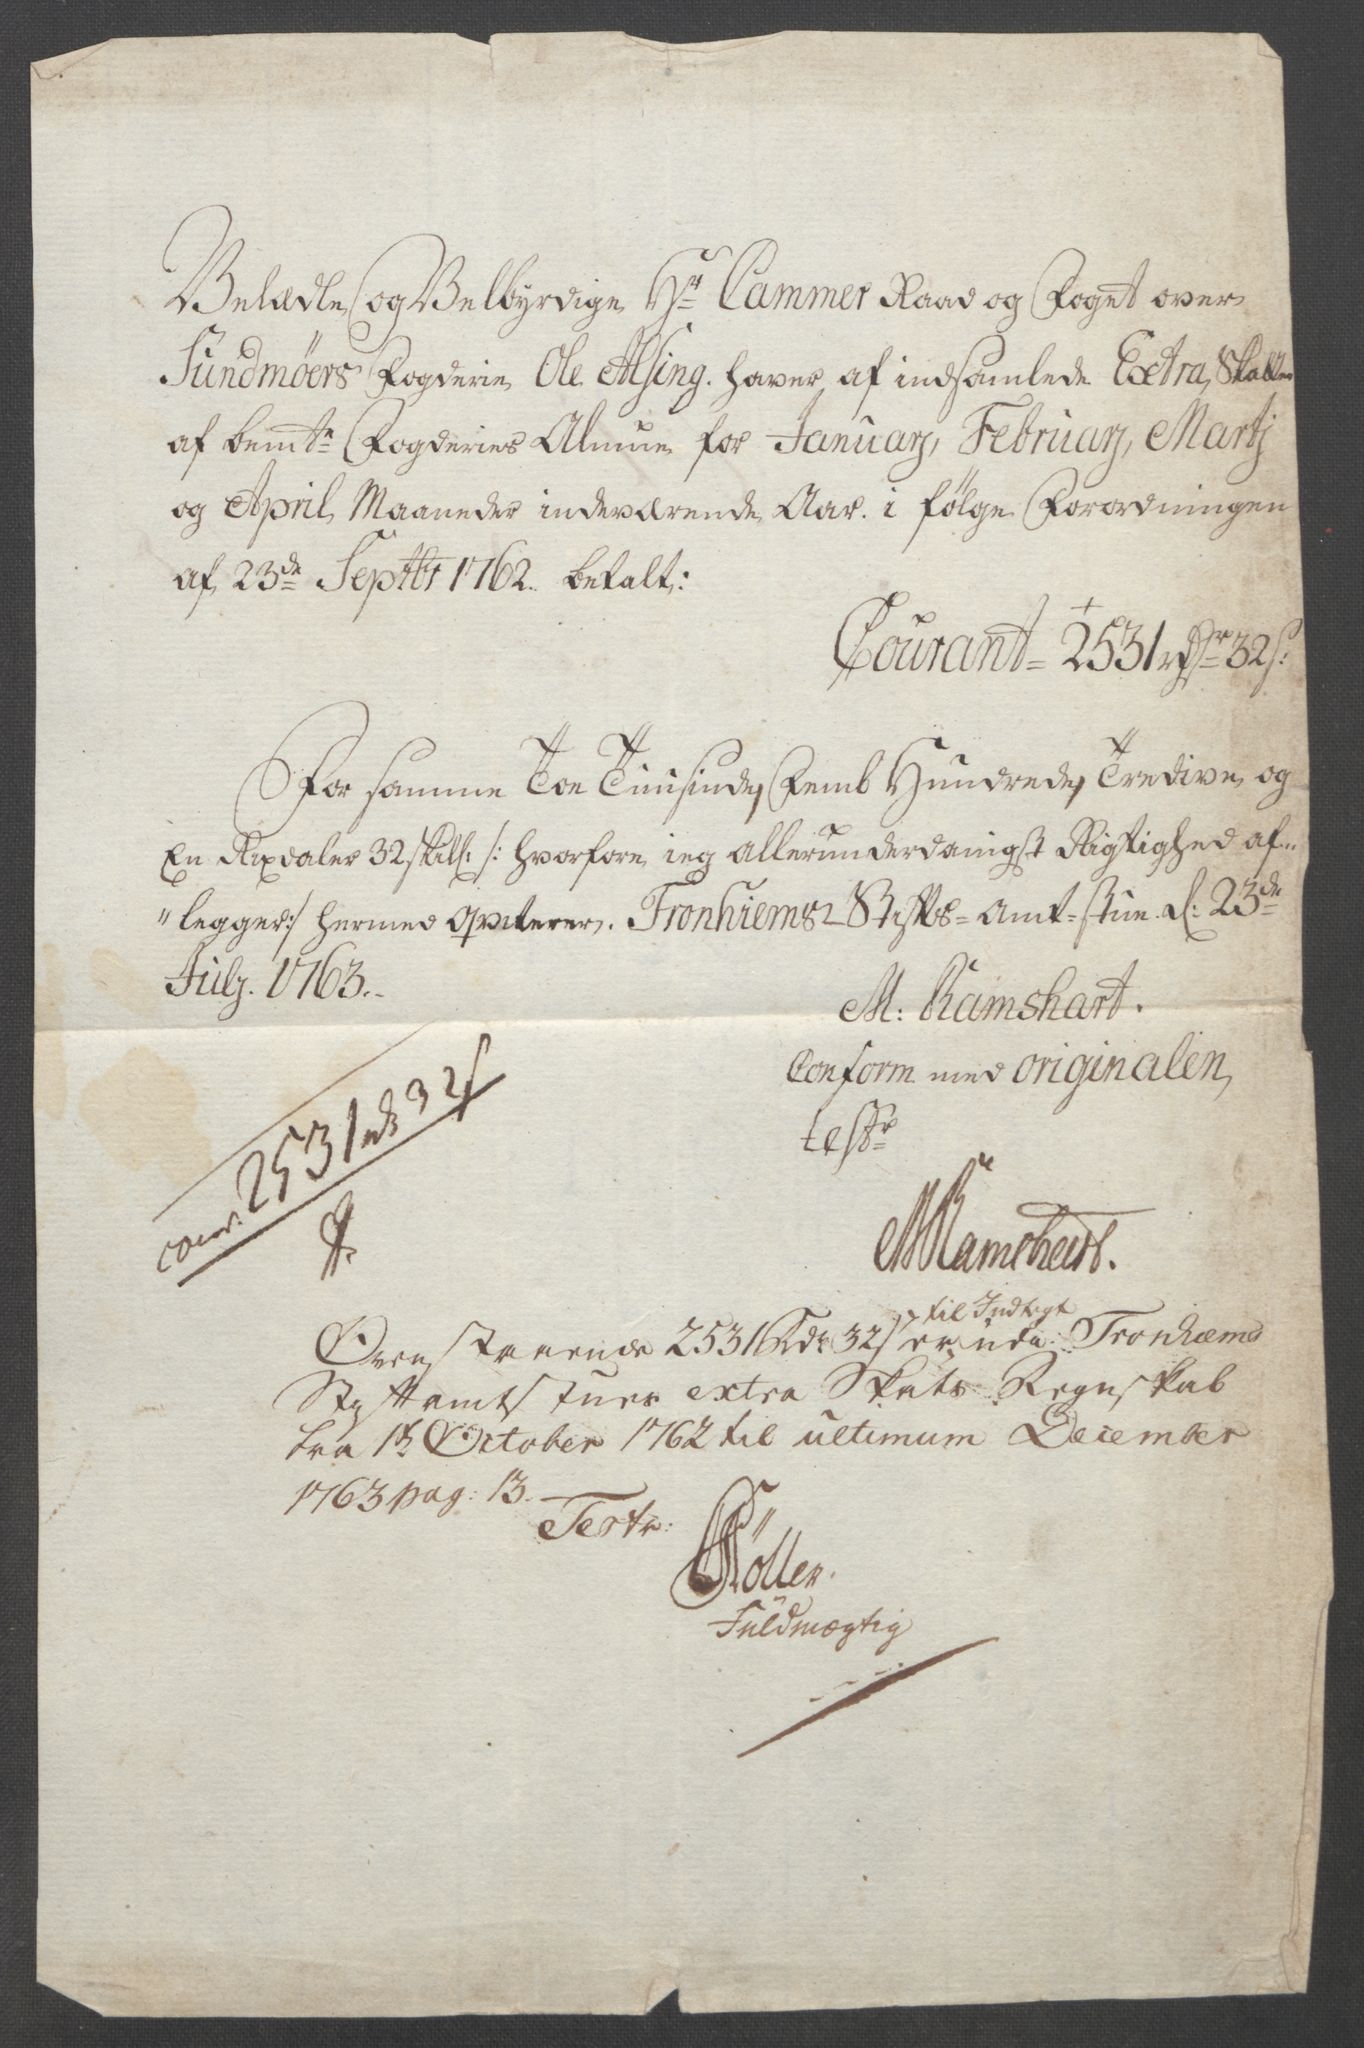 Velædle og Velbyrdige Hr Cammer Raad og Foget over
Sundmöers Fogderie Ole Alsing. haver af indsamlede Extra Skatter
af bemte Fogderies Almue for Januarj, Februarj, Martj
og April Maaneder indeværende Aar. i følge Forordningen
af 23de Septbr 1762. betalt:
Courant = 2531 rdr 32 s:
For samme Toe Tuusinde, Femb Hundrede, Tredive og
En Rixdaler 32 skill: /: hvorfore jeg allerunderdanigst Rigtighed af=
"legger :/ hermed qviterer. Tronhiems Stifts = Amt = Stue d: 23de
Julj. 1763.
M: Ramshart.
Conform med originalen,
test
cour. 2531 rd 32 s
MRamshart.
til Indtegt
Ovenstaaende 2531 Rdr 32 s er udi Tronhiems
Stiftamtstues extra Skats Regnskab
fra 1te October 1762 til ultimum December
1763 pag: 13.
Testr:
Köller.
Fuldmægtig